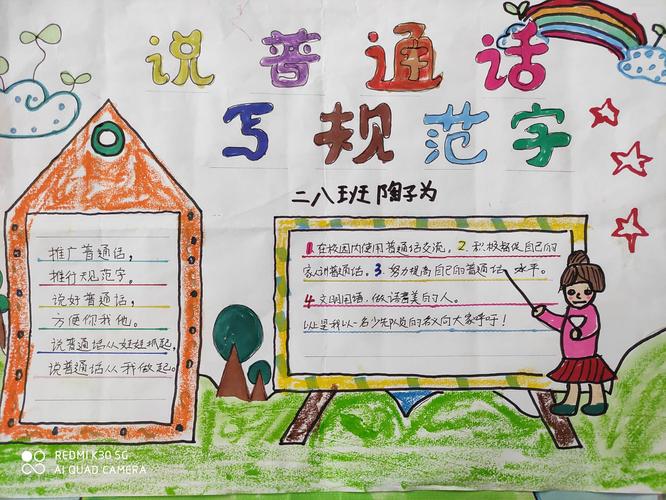 说普通话
写规范字
二八班 陶子为
推广普通话，
推行规范字。
说好普通话，
方便你我他。
说普通话从娃娃抓起，
说普通话从我做起。
1.在校园内使用普通话交流，2.积极督促自己的
家人讲普通话，3.努力提高自己的普通话水平。
4.文明用语，做语言美的人。
以上是我以一名少先队员的名义向大家呼吁！
REDMI K30 5G
AI QUAD CAMERA